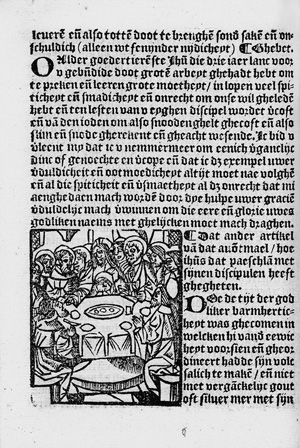 leuerē eñ also totten doot te brenghē sond sake eñ on-
schuldich (alleen wt fenynder nydicheyt) ¶ Ghebet.
O Alder goedertierēste Jhū die drie iaer lanc voor
v gebēdide doot grotē arbeyt ghehadt hebt om
te prekē eñ leeren grote moetheyt / in lopen veel spi-
ticheyt eñ smadicheyt eñ onrecht om onse wil gheledē
hebt eñ ten lestē van v eyghen discipel wordē vcoft
eñ vā den ioden om also snooden ghelt ghecoft eñ also
slim eñ snode gherekent eñ gheacht wesende. Ic bid v
vleent my dat ic v nemmermeer om eenich vgancly
dinc of genoechte en vcope eñ dat ic dȳ exempel uwer
vduldicheit eñ ootmoedicheyt altijt moet nae volghē
eñ al die spiticheit eñ vsmaetheyt al dȳ onrecht dat mi
aenghedaen mach wordē door dye hulpe uwer graciē
vduldelyc mach vwinnen om die eere eñ glorie uwes
godliken naems met ghelijcken moet mach draghen.
¶ Dat ander artikel
vā dat auōtmael / hoe
ihūs dat paeschlā met
sijnen discipulen heeft
ghegheten.
DOe de tijt der god
liker barmhertic-
heyt was ghecomen in
welcken hi vand eewic
heyt voorsien eñ gheor
dineert hadde sijn volc
salich te makē / eñ niet
met vergāckelyc gout
oft siluer mer met sijn